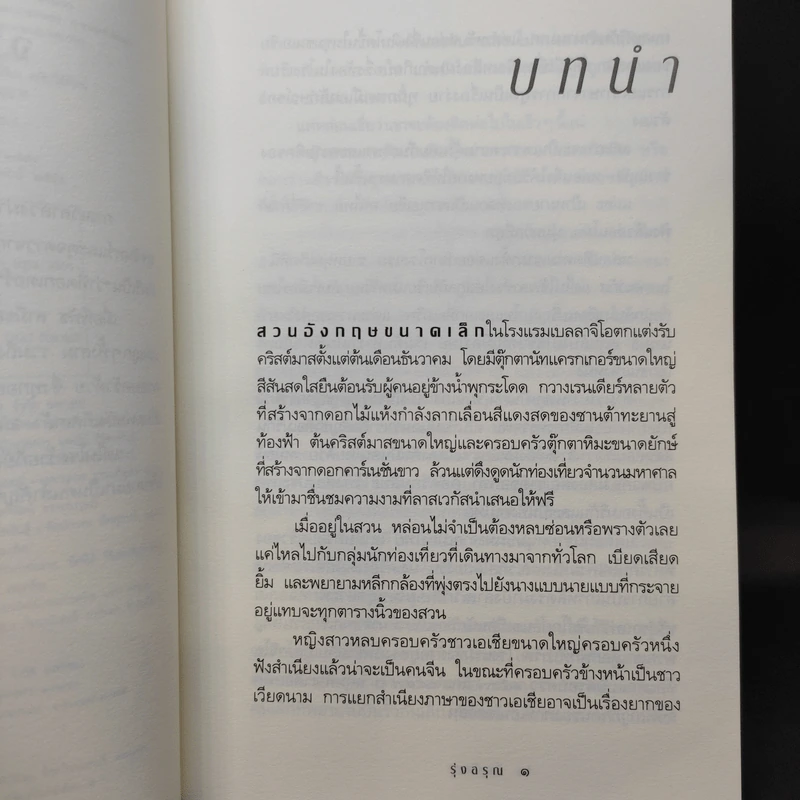 บทนำ
สวนอังกฤษขนาดเล็กในโรงแรมเบลลาจิโอตกแต่งรับ
คริสต์มาสตั้งแต่ต้นเดือนธันวาคม โดยมีตุ๊กตานัทแครกเกอร์ขนาดใหญ่
สีสันสดใสยืนต้อนรับผู้คนอยู่ข้างน้ำพุกระโดด กวางเรนเดียร์หลายตัว
ที่สร้างจากดอกไม้แห้งกำลังลากเลื่อนสีแดงสดของซานต้าทะยานสู่
ท้องฟ้า ต้นคริสต์มาสขนาดใหญ่และครอบครัวตุ๊กตาหิมะขนาดยักษ์
ที่สร้างจากดอกคาร์เนชั่นขาว ล้วนแต่ดึงดูดนักท่องเที่ยวจำนวนมหาศาล
ให้เข้ามาชื่นชมความงามที่ลาสเวกัสนำเสนอให้ฟรี
เมื่ออยู่ในสวน หล่อนไม่จำเป็นต้องหลบซ่อนหรือพรางตัวเลย
แค่ไหลไปกับกลุ่มนักท่องเที่ยวที่เดินทางมาจากทั่วโลก เบียดเสียด
ยิ้ม และพยายามหลีกกล้องที่พุ่งตรงไปยังนางแบบนายแบบที่กระจาย
อยู่แทบจะทุกตารางนิ้วของสวน
หญิงสาวหลบครอบครัวชาวเอเชียขนาดใหญ่ครอบครัวหนึ่ง
ฟังสำเนียงแล้วน่าจะเป็นคนจีน ในขณะที่ครอบครัวข้างหน้าเป็นชาว
เวียดนาม การแยกสำเนียงภาษาของชาวเอเชียอาจเป็นเรื่องยากของ
รุ่งอรุณ ๑